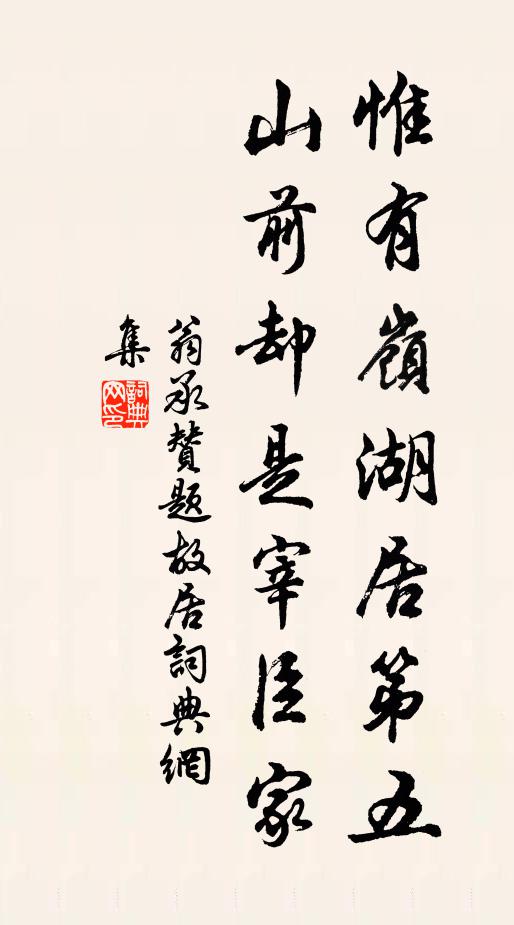 惟有嶺湖居第五
山前却是宰臣家
翁承贊题故居詞典網
集
詞典
网印